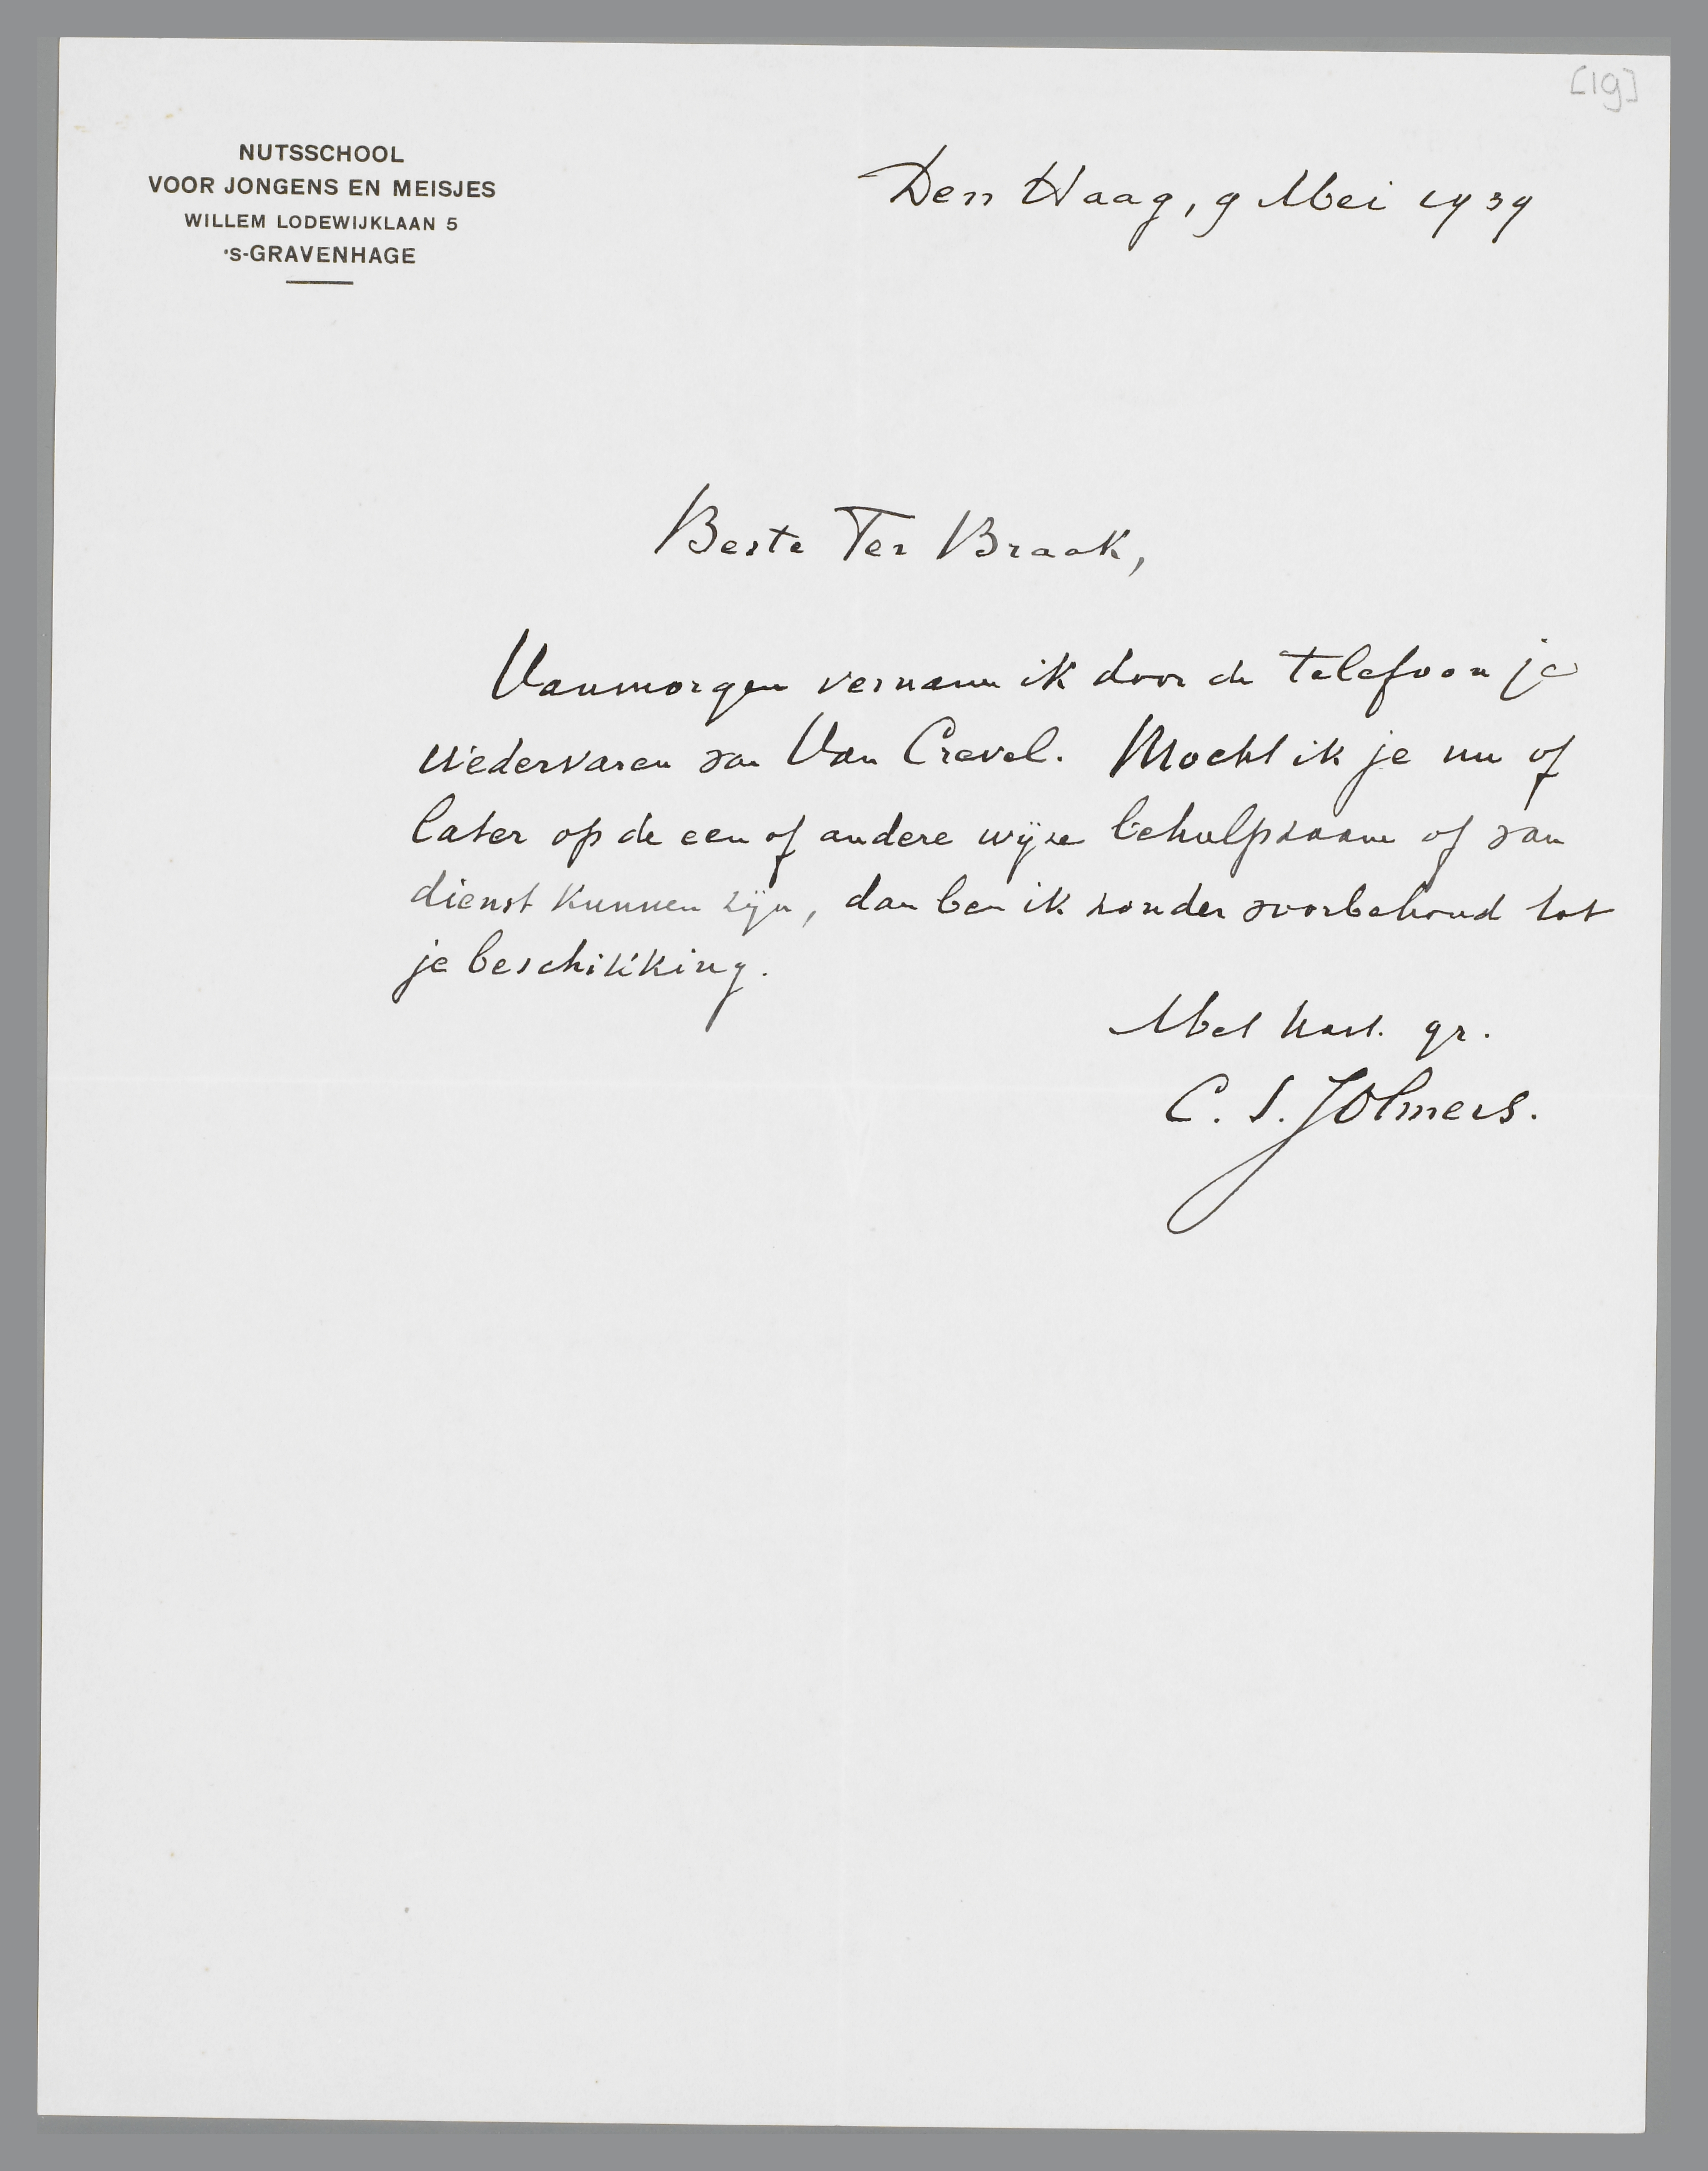 [19]
NUTSSCHOOL
VOOR JONGENS EN MEISJES
WILLEM LODEWIJKLAAN 5
's-GRAVENHAGE
Den Haag, 9 Mei 1939
Beste Ter Braak,
Vanmorgen vernam ik door de telefoon je
wedervaren van Van Crevel. Mocht ik je nu of
later op de een of andere wijze behulpzaam of van
dienst kunnen zijn, dan ben ik zonder voorbehoud tot
je beschikking.
Met hart. gr.
C. S. Jolmers.